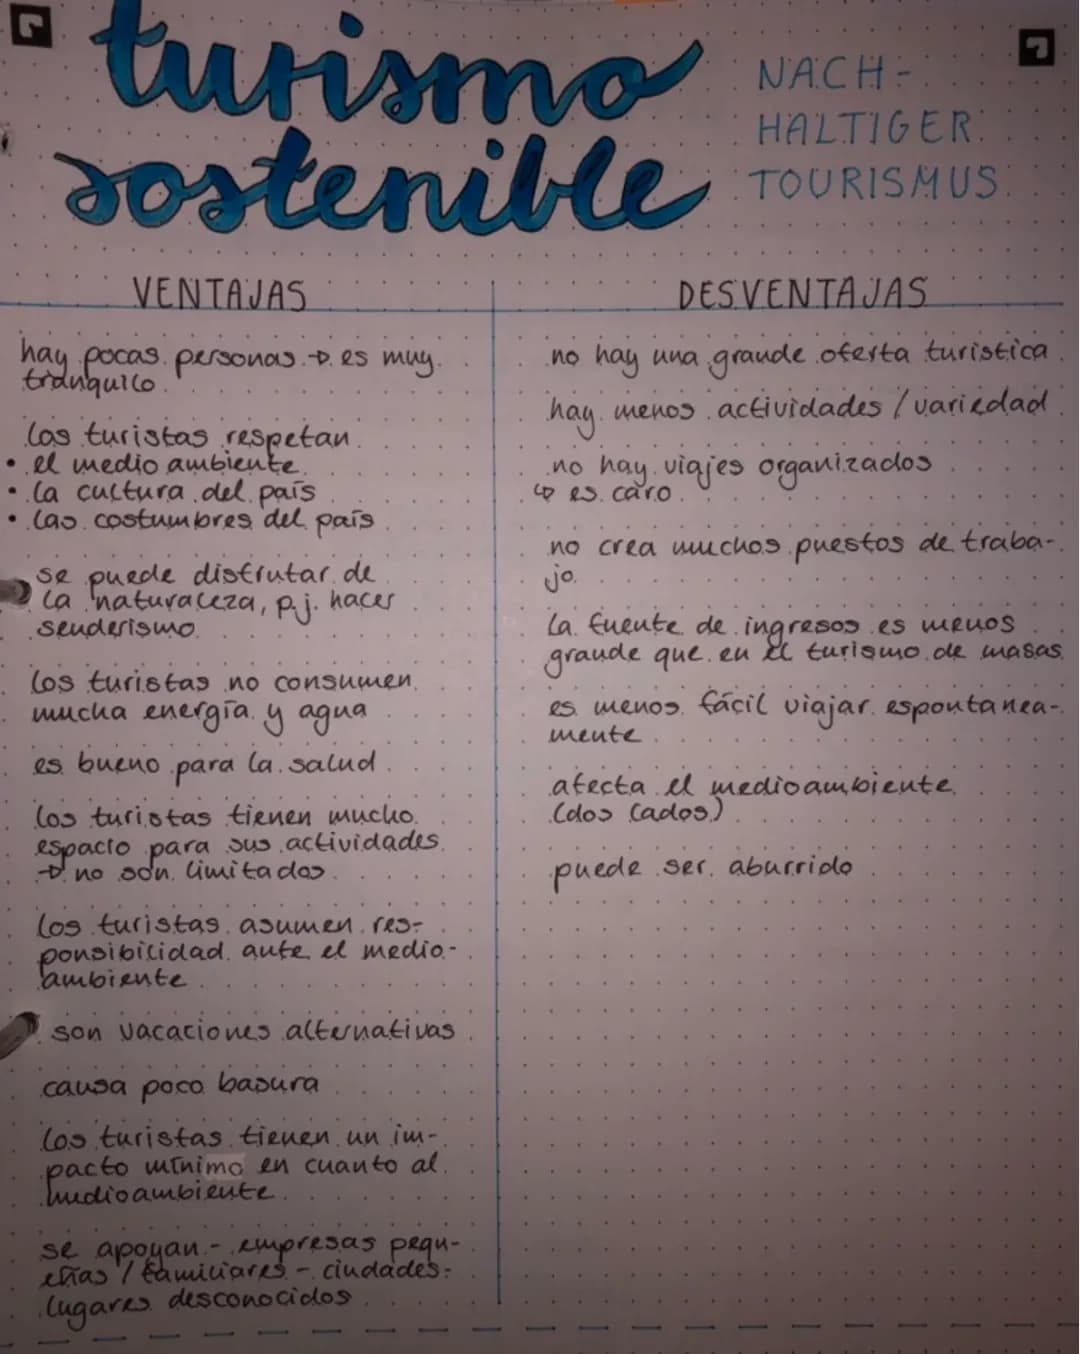 turismo
sostenible
NACH-
HALTIGER
TOURISMUS
VENTAJAS
hay pocas personas → es muy
tranquilo
los turistas respetan
• el medio ambiente
• la cultura del país
• las costumbres del país
se puede disfrutar de
la naturaleza, p.j. hacer
senderismo
los turistas no consumen
mucha energía y agua
es bueno para la salud
los turistas tienen mucho
espacio para sus actividades
→ no son limitados
los turistas asumen res-
ponsibilidad ante el medio-
ambiente
son vacaciones alternativas
causa poco basura
los turistas tienen un im-
pacto mínimo en cuanto al
medioambiente
se apoyan - empresas pequ-
eñas / familiares - ciudades -
lugares desconocidos
DESVENTAJAS
no hay una grande oferta turistica
hay menos actividades / variedad
no hay viajes organizados
↳ es caro
no crea muchos puestos de traba-
jo
la fuente de ingresos es menos
grande que en el turismo de masas
es menos fácil viajar espontanea-
mente
afecta el medioambiente
(dos lados)
puede ser aburrido